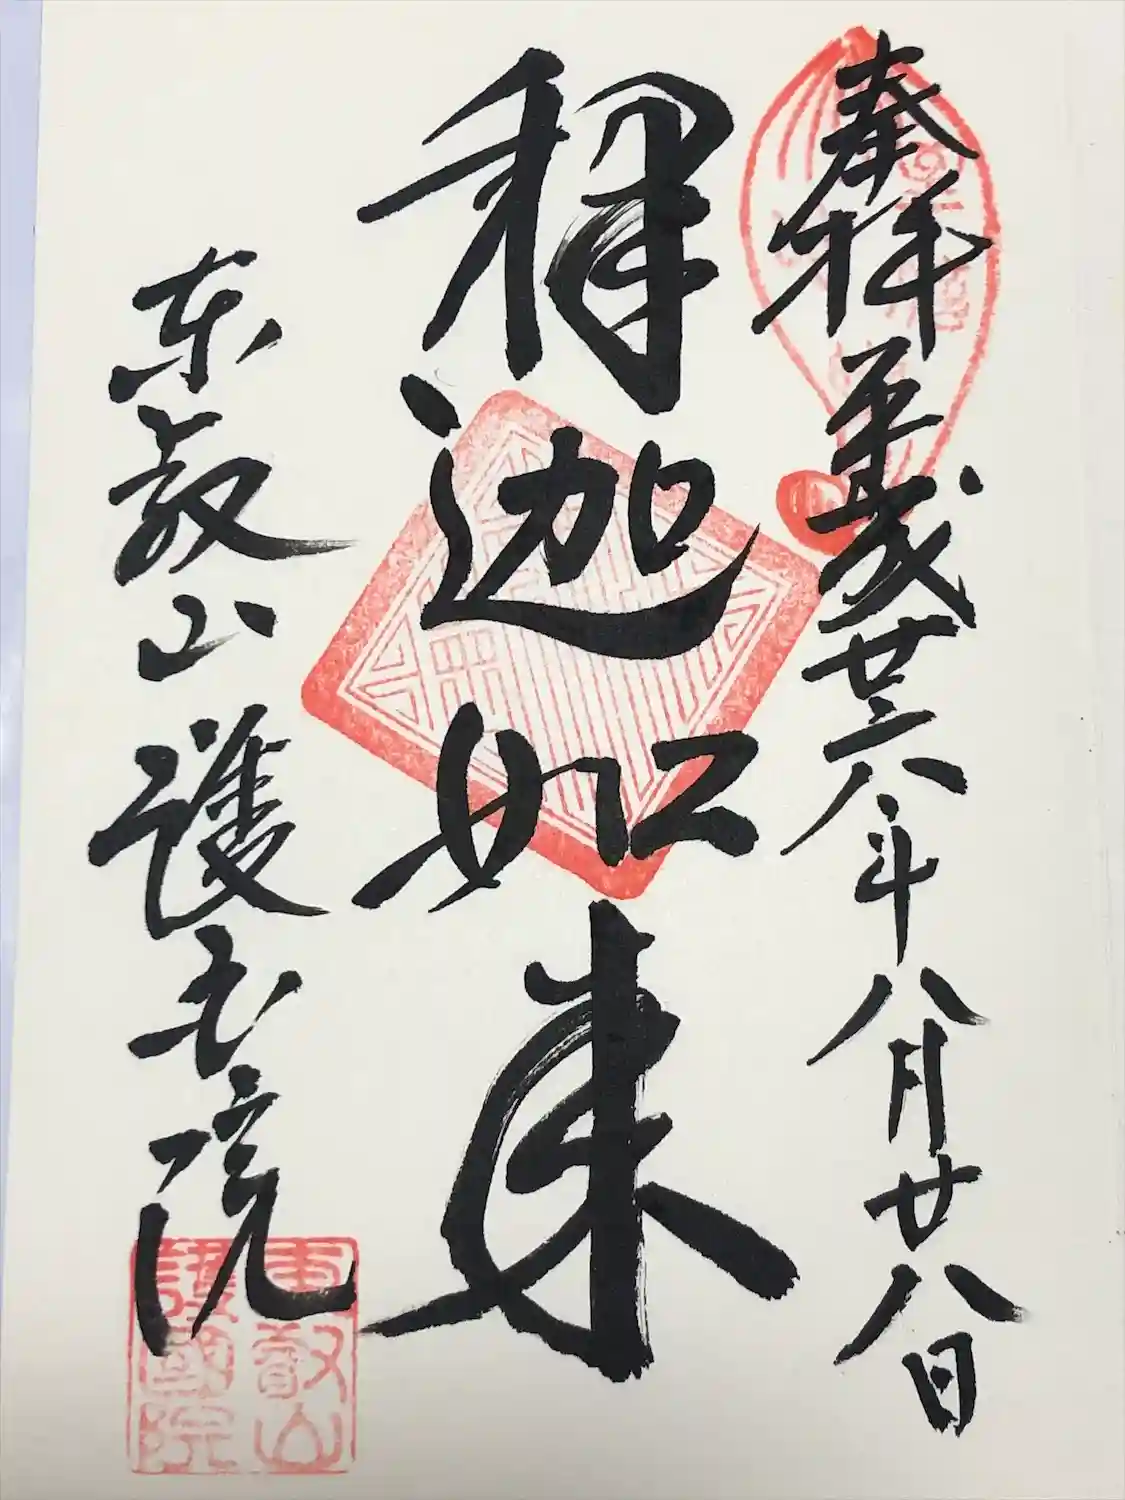 奉拝 平成廿六年八月廿八日
釋迦如来
東叡山 護国院
東叡山
護國院